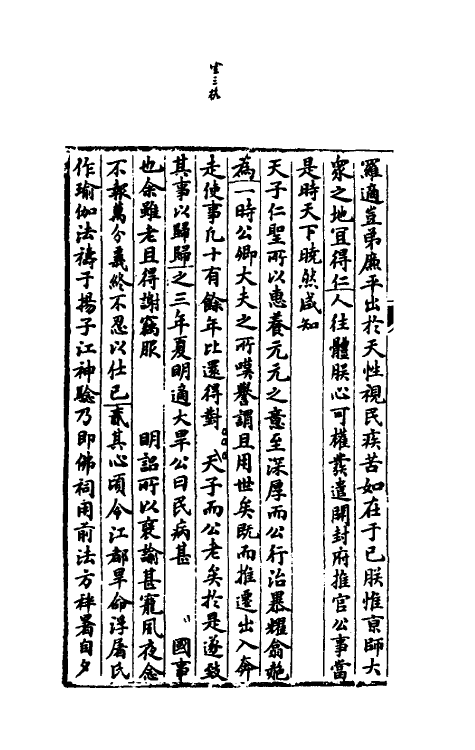 空三格
羅適豈弟廉平出於天性視民疾苦如在于已朕惟京師大
衆之地冝得仁人往體朕心可權發遣開封府推官公事當
是時天下曉然咸知
天子仁聖所以惠養元元之意至深厚而公行治暴耀翕赩
為一時公卿大夫之所嘆譽謂且用世矣既而推遷出入奔
走使事凡十有餘年比還得對 天子而公老矣於是遂致
其事以歸歸之三年夏明適大旱公曰民病甚 國事
也余雖老且得謝竊服 明詔所以褒諭甚寵夙夜念
不報萬分義終不忍以仕已貳其心頃令江都旱命浮屠氏
作瑜伽法禱于揚子江神驗乃即佛祠用前法方祥暑自夕